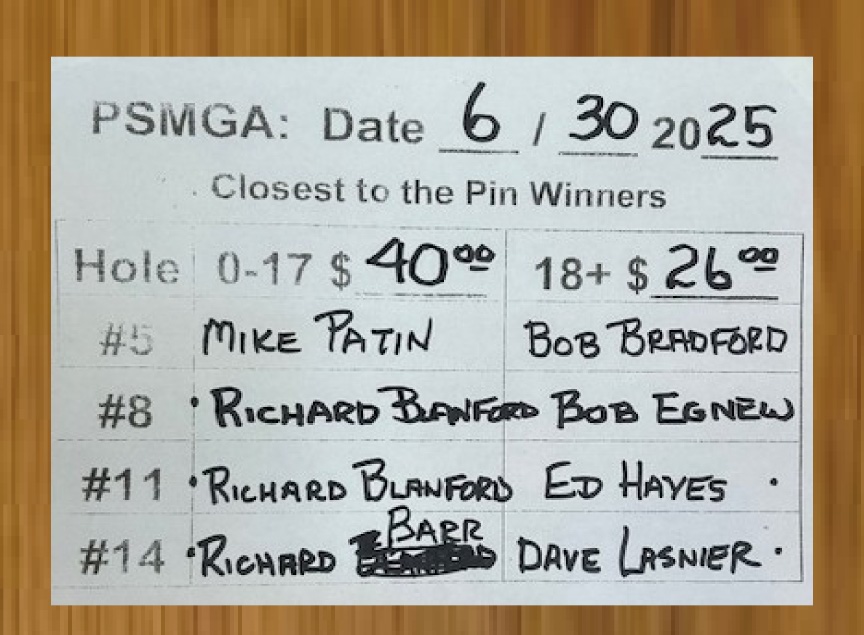 PSMGA: Date 6 / 30 2025
Closest to the Pin Winners
Hole 0-17 $ 40.00 18+ $ 26.00
#5 MIKE PATIN BOB BRADFORD
#8 • RICHARD BLANFORD BOB EGNEW
#11 • RICHARD BLANFORD ED HAYES •
#14 • RICHARD BARR DAVE LASNIER •